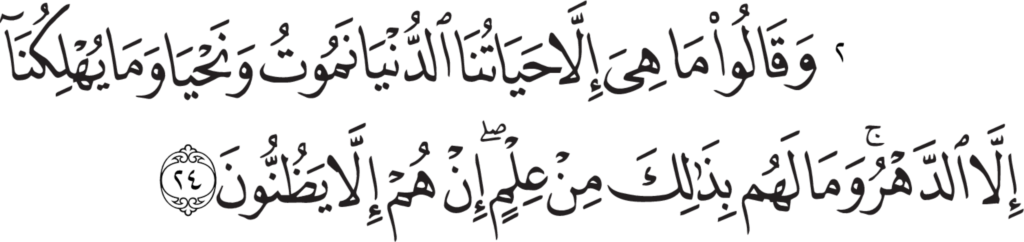 ٢ وَقَالُوا۟ مَا هِىَ إِلَّا حَيَاتُنَا ٱلدُّنْيَا نَمُوتُ وَنَحْيَا وَمَا يُهْلِكُنَآ
إِلَّا ٱلدَّهْرُ ۚ وَمَا لَهُم بِذَٰلِكَ مِنْ عِلْمٍ ۖ إِنْ هُمْ إِلَّا يَظُنُّونَ ٢٤